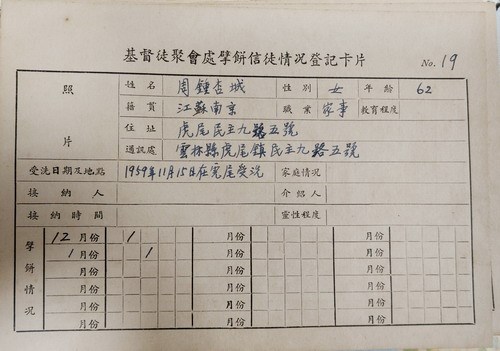 基督徒聚會處擘餅信徒情況登記卡片 No. 19
照片
姓名 周鍾杏城 性別 女 年齡 62
籍貫 江蘇南京 職業 家事 教育程度
住址 虎尾民主九路五號
通訊處 雲林縣虎尾鎮民主九路五號
受洗日期及地點 1959年11月15日在虎尾受洗 家庭情況
接納人 介紹人
接納時間 靈性程度
擘餅情況
12月份 1 月份 月份
1月份 1 月份 月份
月份 月份 月份
月份 月份 月份
月份 月份 月份
月份 月份 月份